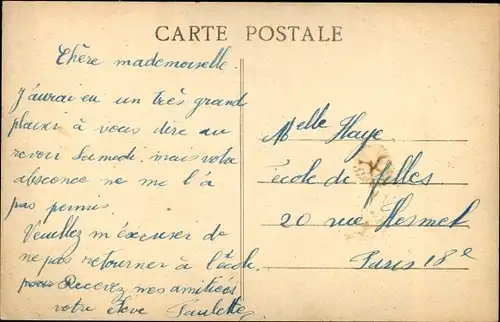 CARTE POSTALE
Chère mademoiselle.
J'aurai eu un très grand
plaisir à vous dire au
revoir Samedi. mais votre
abscence ne me l'a
pas permis
Veuillez m'éxcuser de
ne pas retourner à l'école.
Recevez mes amitiées
votre élève Paulette
Melle Haye
école de filles
20 rue Hermel
Paris 18e